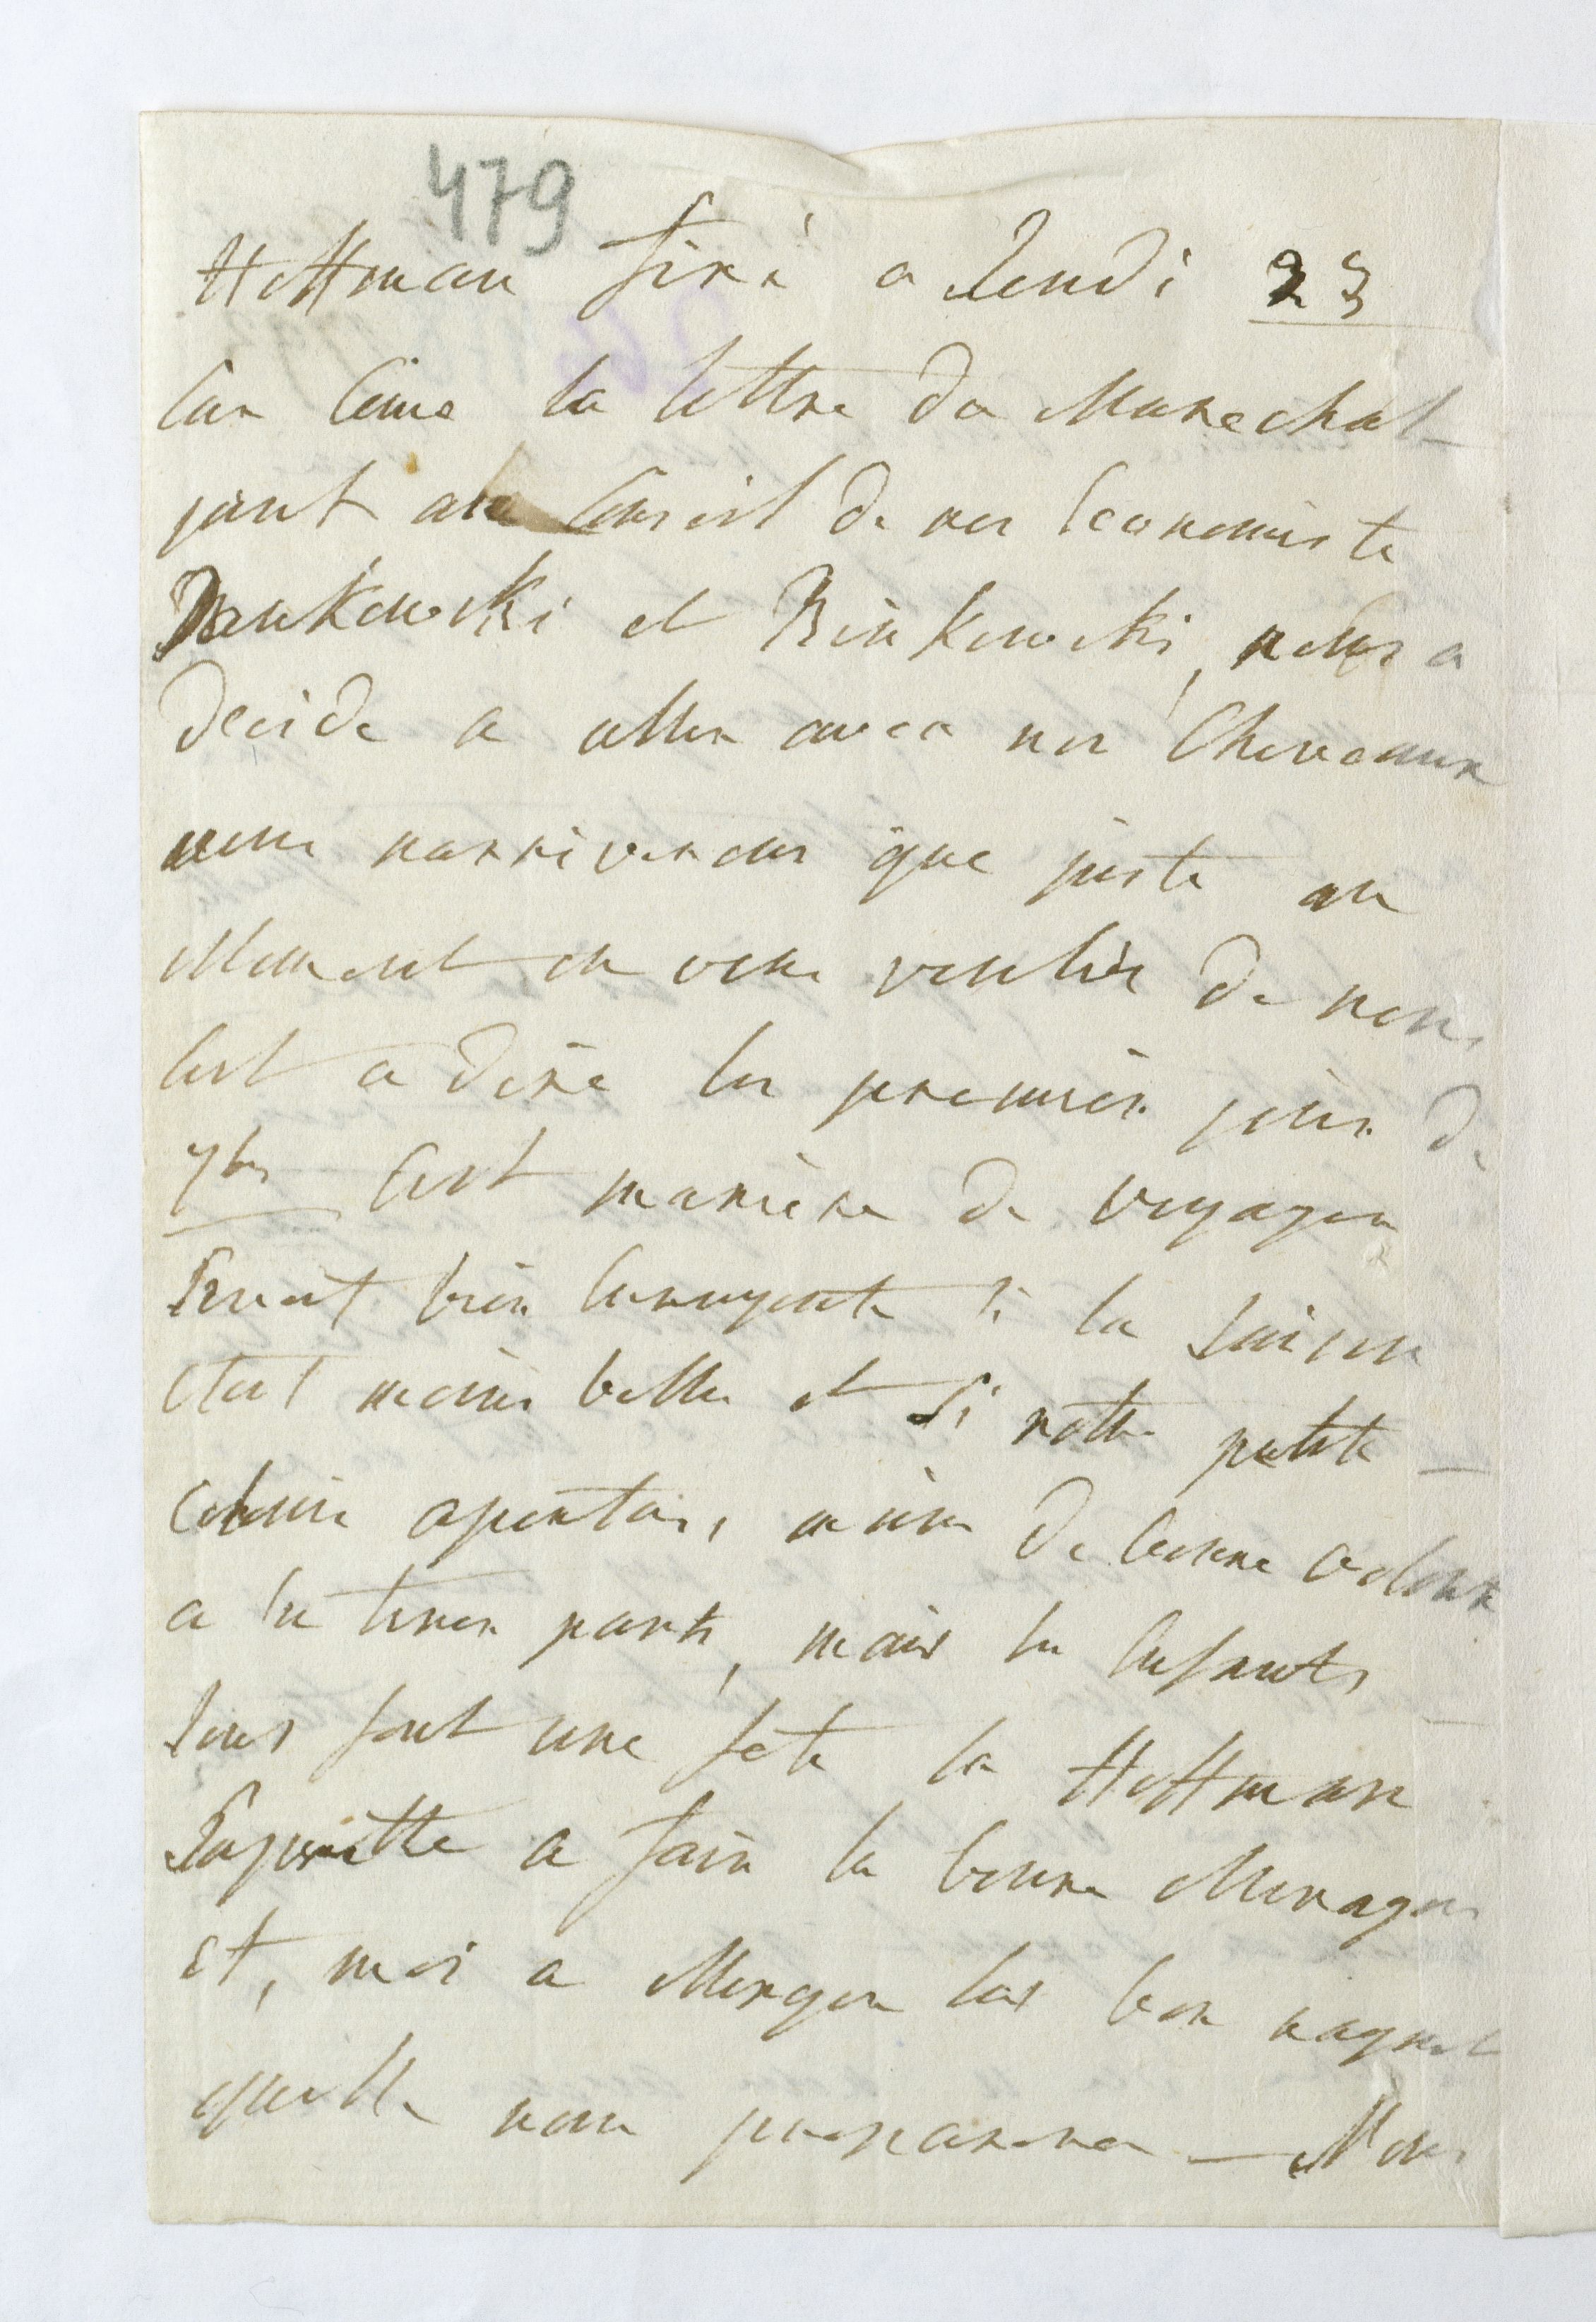 479
Hoffman fixé a Jeudi 23
Car come la lettre du Marechal
joint au Conseil de nos Economiste
Dankowski et Binkowski, nous a
decide a aller avec nos Chevaux
nous narriverons que juste au
Moment ou vous voulies de nous
Cest a dire les premier jour de
7bre Cest maniere de voyager
Seroit bien Ennuyente si la Saison
etoit moins belle et si notre petite
colonie aportoit moins de bonne volont
a En tirer parti, mais les Enfants
Sens font une fete la Hoffman
Saprette a fair la bonne Menager
et, moi a Manger les bon ragout
quelle nous preparera — Nous